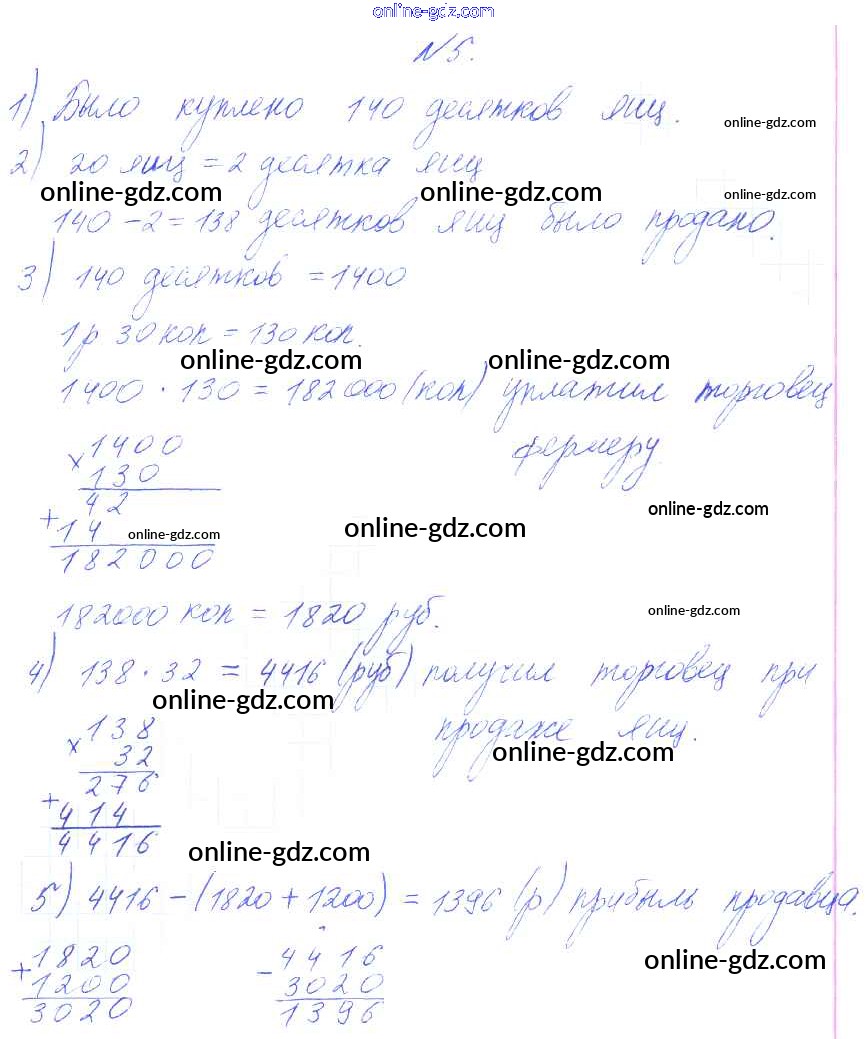 online-gdz.com
№5.
1) Было куплено 140 десятков яиц.
online-gdz.com
2) 20 яиц = 2 десятка яиц
online-gdz.com online-gdz.com online-gdz.com
140 - 2 = 138 десятков яиц было продано.
3) 140 десятков = 1400
1р 30 коп = 130 коп.
online-gdz.com online-gdz.com
1400 · 130 = 182000 (коп) уплатил торговец
фермеру.
x 1400
130
42
+ 14
182000
online-gdz.com
online-gdz.com
online-gdz.com
182000 коп = 1820 руб.
online-gdz.com
4) 138 · 32 = 4416 (руб) получил торговец при
продаже яиц.
online-gdz.com
x 138
32
276
+ 414
4416
online-gdz.com
online-gdz.com
5) 4416 - (1820 + 1200) = 1396 (р) прибыль продавца.
+ 1820
1200
3020
- 4416
3020
1396
online-gdz.com